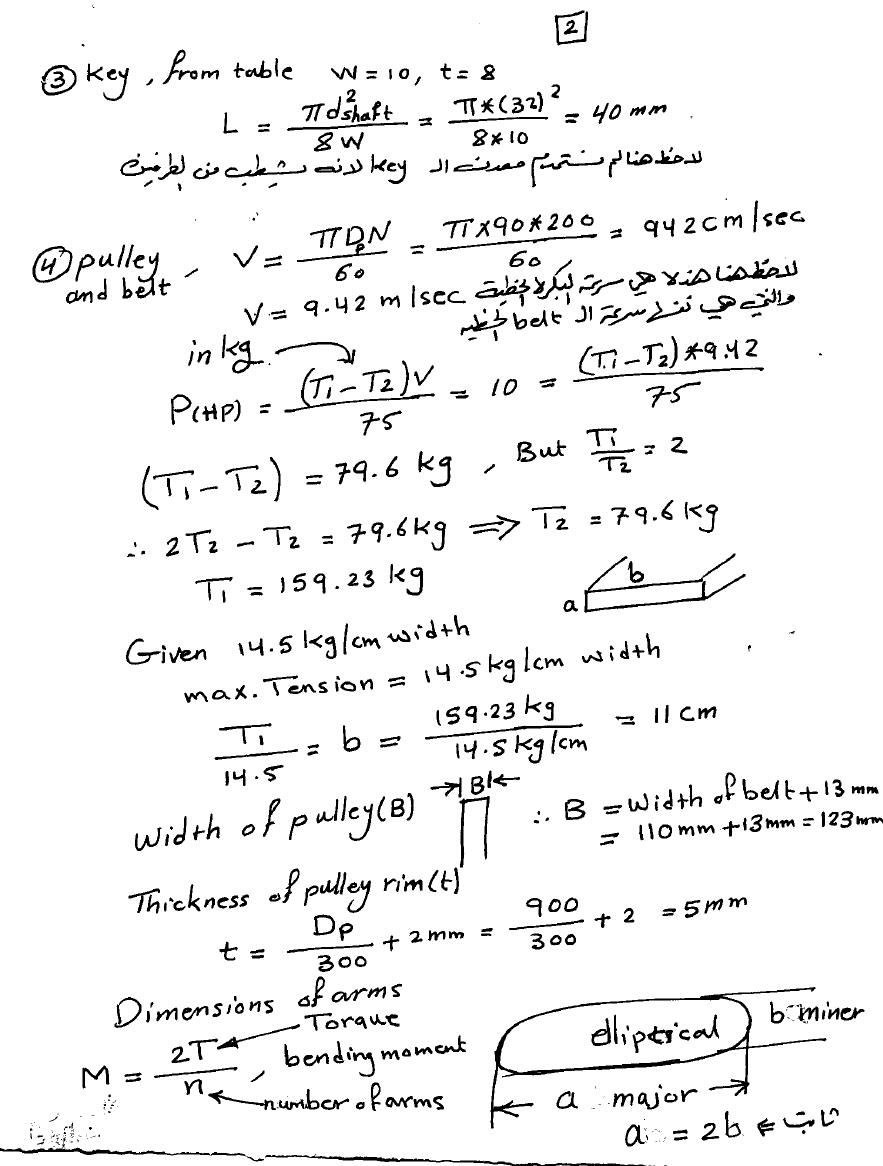 2
③ key , from table w = 10, t = 8
L = πd²shaft / 8W = π*(32)² / 8*10 = 40 mm
لاحظ هنا لم نستخدم key لانه من الطرفين
④ pulley and belt , V = πDpN / 60 = π×90*200 / 60 = 942 cm/sec
V = 9.42 m/sec لاحظ هنا هذه هي سرعة البكرة الخطية
والتي هي نفسها سرعة الـ belt الخطية
in kg
P(HP) = (T1-T2)V / 75 = 10 = (T1-T2)*9.42 / 75
(T1-T2) = 79.6 kg , But T1/T2 = 2
∴ 2T2 - T2 = 79.6kg ⇒ T2 = 79.6 kg
T1 = 159.23 kg
a b
Given 14.5 kg/cm width
max. Tension = 14.5 kg/cm width
T1 / 14.5 = b = 159.23 kg / 14.5 kg/cm = 11 cm
Width of pulley(B) B ∴ B = width of belt + 13 mm
= 110 mm + 13mm = 123mm
Thickness of pulley rim(t)
t = Dp / 300 + 2mm = 900 / 300 + 2 = 5mm
Dimensions of arms
M = 2T / n , bending moment
Torque
number of arms
elliptical
b miner
a major
a = 2b ⇐ ثابت